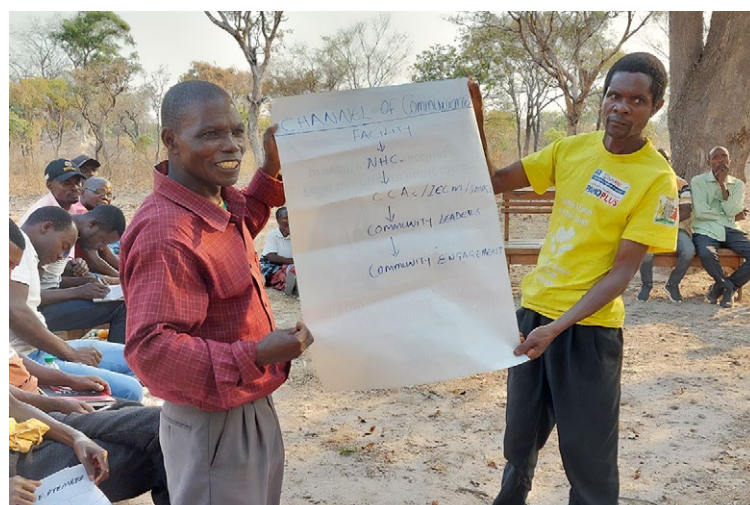 CHANNEL OF COMMUNICATION
FACILITY
NHC.
COMMUNITY LEADERS
COMMUNITY ENGAGEMENT
PLUS